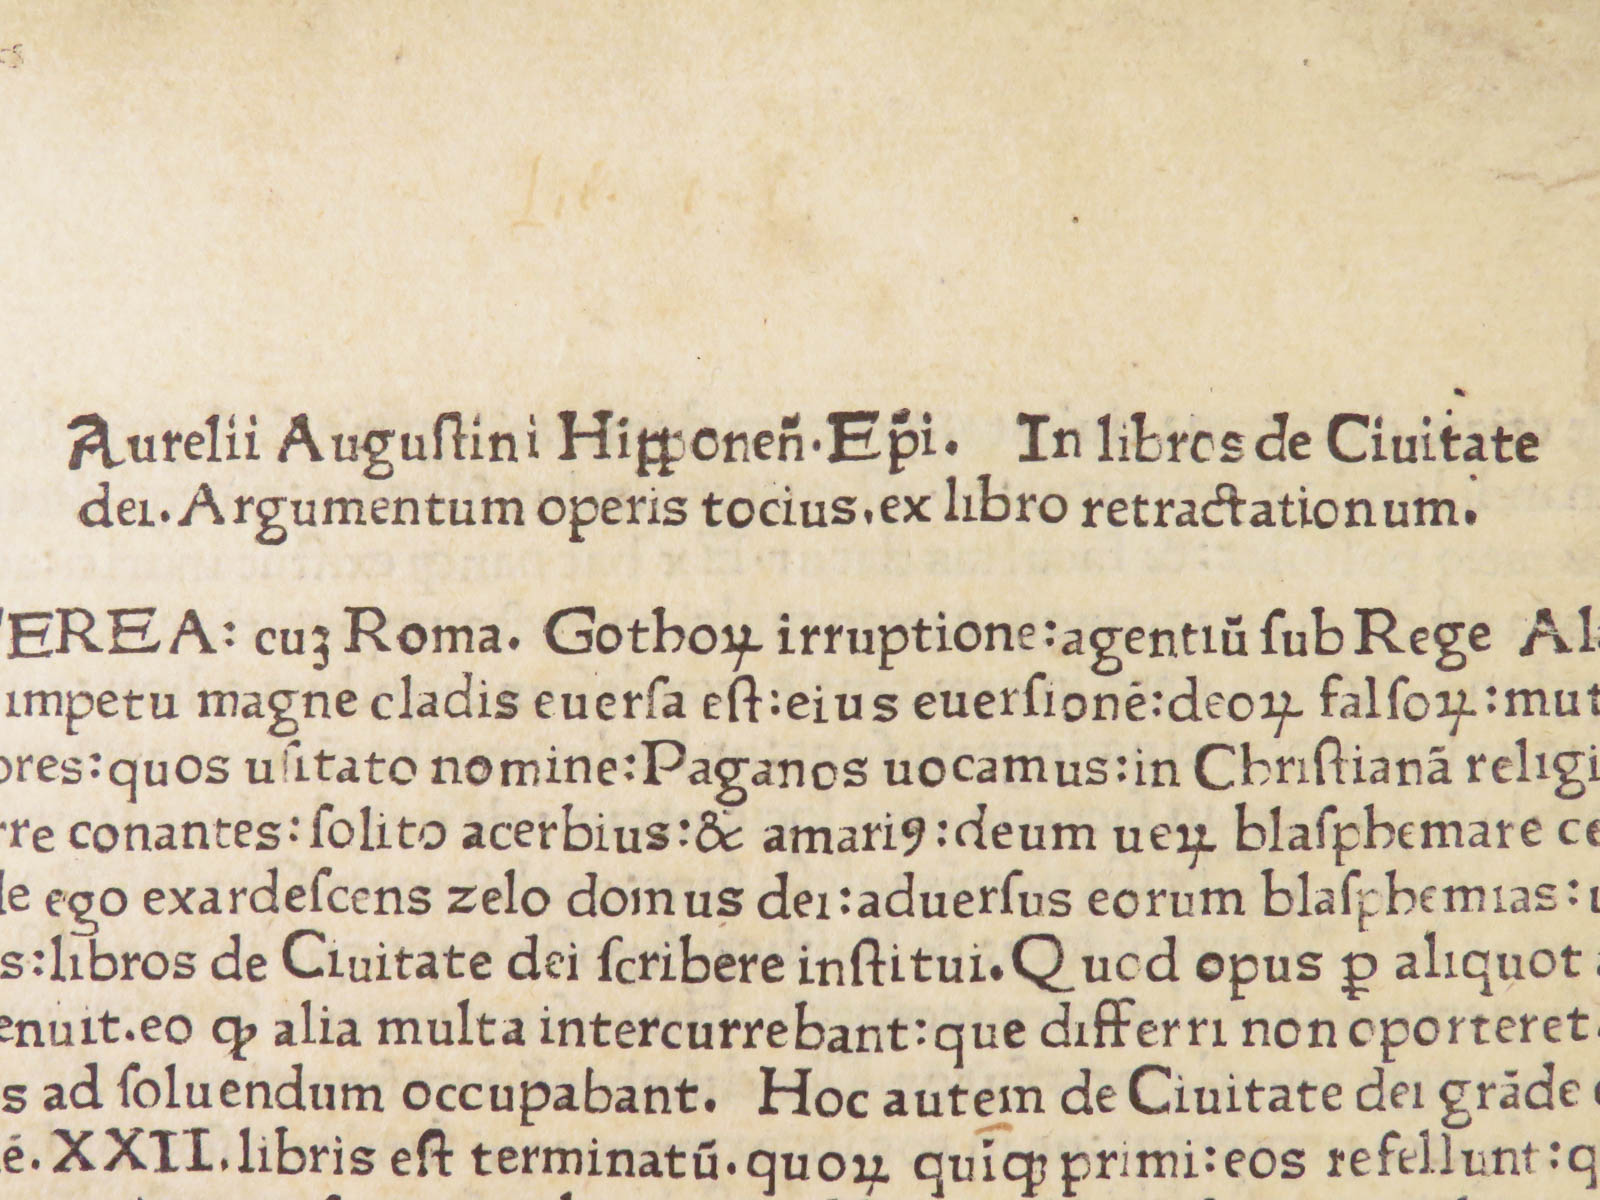 Aurelii Auguſtini Hipponeñ. Ep̃i. In libros de Ciuitate
dei. Argumentum operis tocius, ex libro retractationum.
EREA: cuꝫ Roma. Gothoꝝ irruptione: agentiū ſub Rege Al
impetu magne cladis euerſa eſt: eius euerſionē: deoꝝ falſoꝝ: mut
ores: quos uſitato nomine: Paganos uocamus: in Chriſtianã religi
rre conantes: ſolito acerbius: & amariꝰ: deum ueꝝ blaſphemare ce
de ego exardeſcens zelo domus dei: aduerſus eorum blaſphemias:
s: libros de Ciuitate dei ſcribere inſtitui. Quod opus ꝑ aliquot
enuit. eo ꝙ alia multa intercurrebant: que differri non oporteret.
s ad ſoluendum occupabant. Hoc autem de Ciuitate dei grãde
ē. XXII. libris eſt terminatū. quoꝝ quīꝙ primi: eos refellunt: q